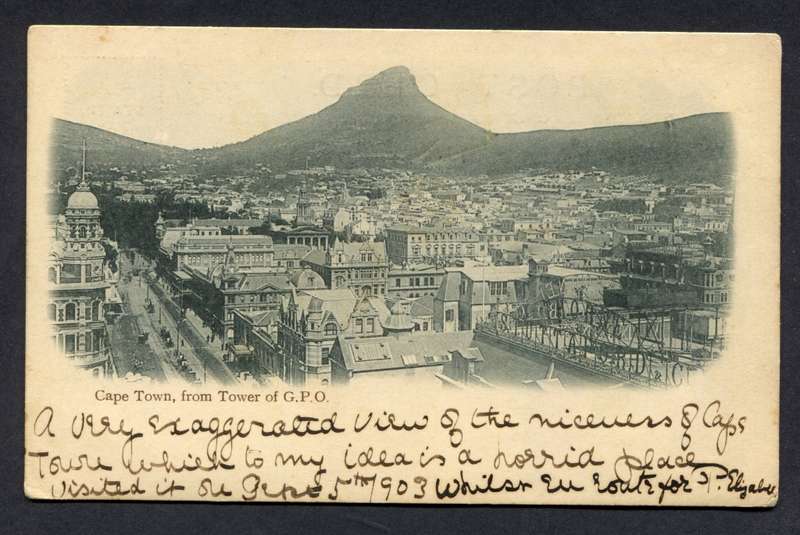 Cape Town, from Tower of G.P.O.
A very exaggerated view of the niceness of Cape
Town which to my idea is a horrid place
Visited it on Sept 5th 1903 Whilst En route for P. Elizabe